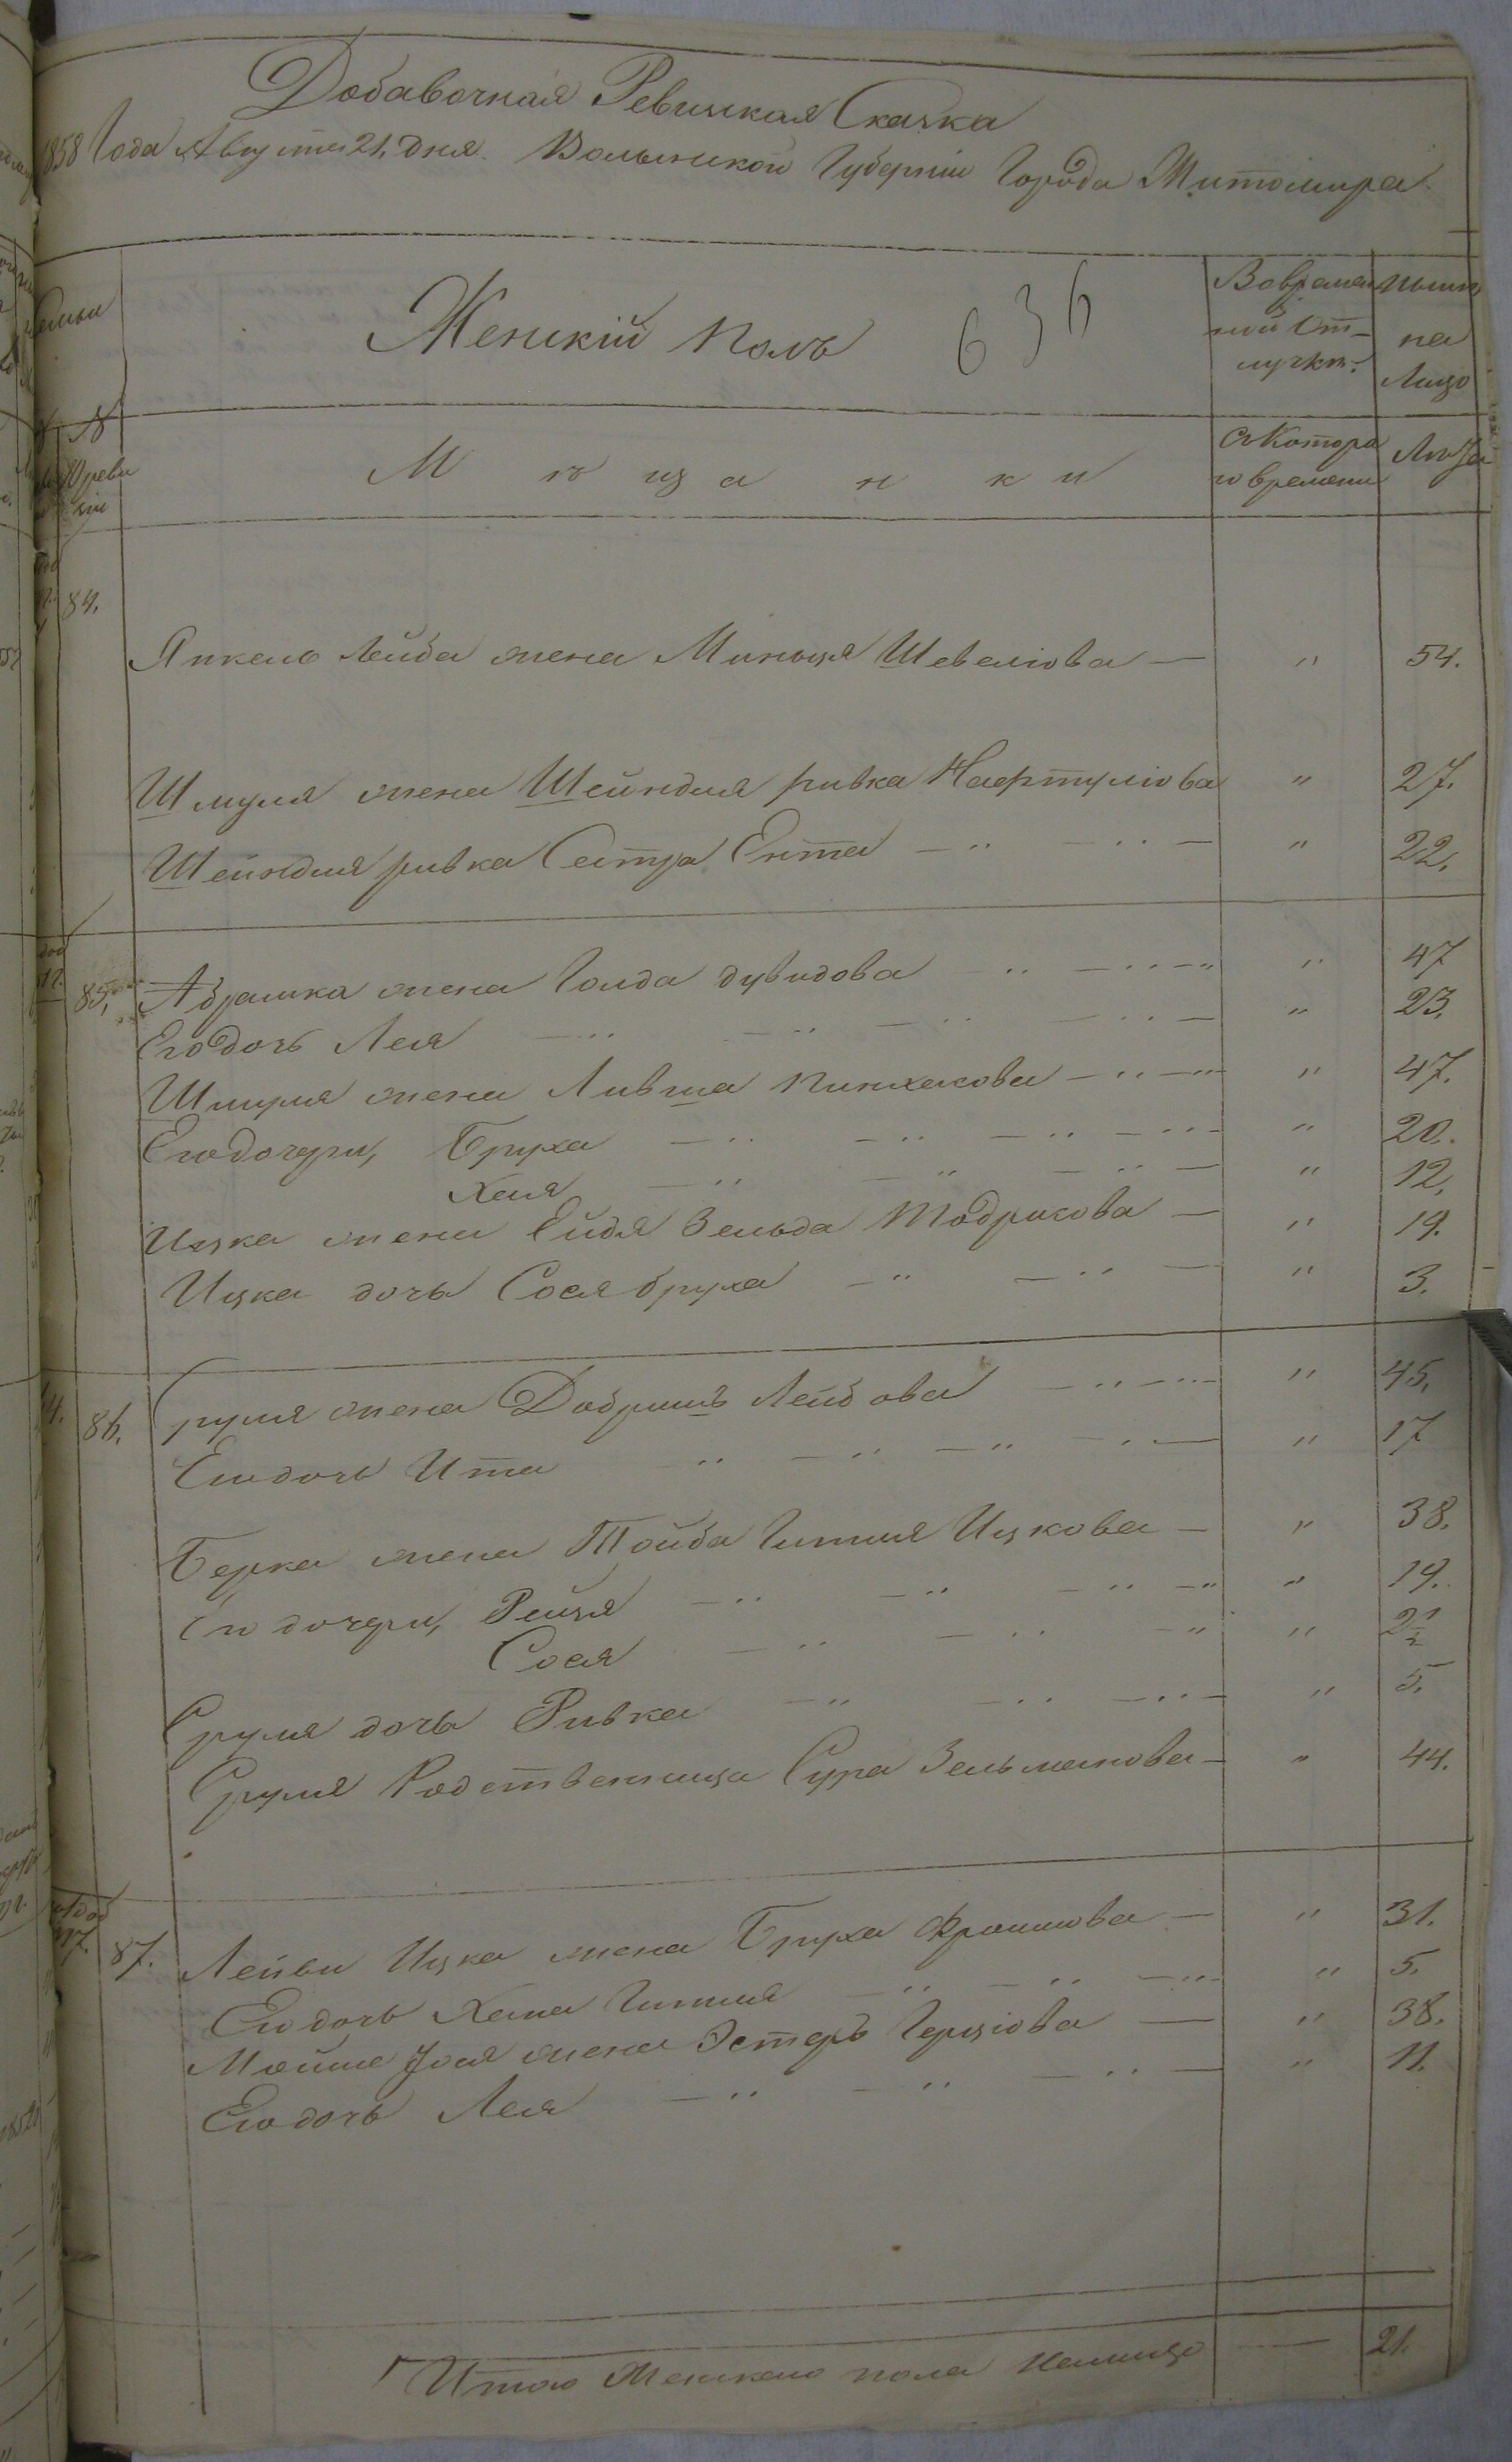 Добавочная Ревизская Сказка
1858 Года Августа 21, дня. Волынской Губерніи Города Житомира
Семьи
Женскій полъ 636
Во времен
ной От-
лучкѣ.
ныни
на
Лицо
№
М ѣ щ а н к и
С Котора
го времени
Лѣта
84.
Янкель Лейба жена Миньця Шевелiова — " 54.
Шмуля жена Шейндля ривка Нафтулiова " 27.
Шейндля ривка Сестра Ента — " — " — " 22.
85, Абрашка жена Голда дувидова " — " — " " 47
Его дочь Лея — " — " — " — " — " 23.
Шмуля жена Ливша Пинхасова — " — " " 47.
Его дочери, Бруха — " — " — " — " — " 20.
Хая — " — " — " — " 12,
Ицка жена Ейдя Зельда Тодрисова — " 19.
Ицка дочь Сося бруха — " — " — " 3.
86, Сруля жена Добришъ Лейбова — " — " — " 45,
Его дочь Ита " — " — " — " — " 17
Берка жена Тойба Гитля Ицкова — " 38.
Его дочери, Рейзя — " — " — " — " " 19.
Сося — " — " — " " 2½
Сруля дочь Ривка — " — " — " — " 5.
Сруля Родственница Сура Зельманова — " 44.
87. Лейви Ицка жена Бруха Фроимова — " 31.
Его дочь Хана Гитля " — " — " — " 5.
Мойше Лося жена Эстеръ Герцiова — " 38.
Его дочь Лея — " — " — " — " 11.
Итого Женскаго пола налицо — 21.